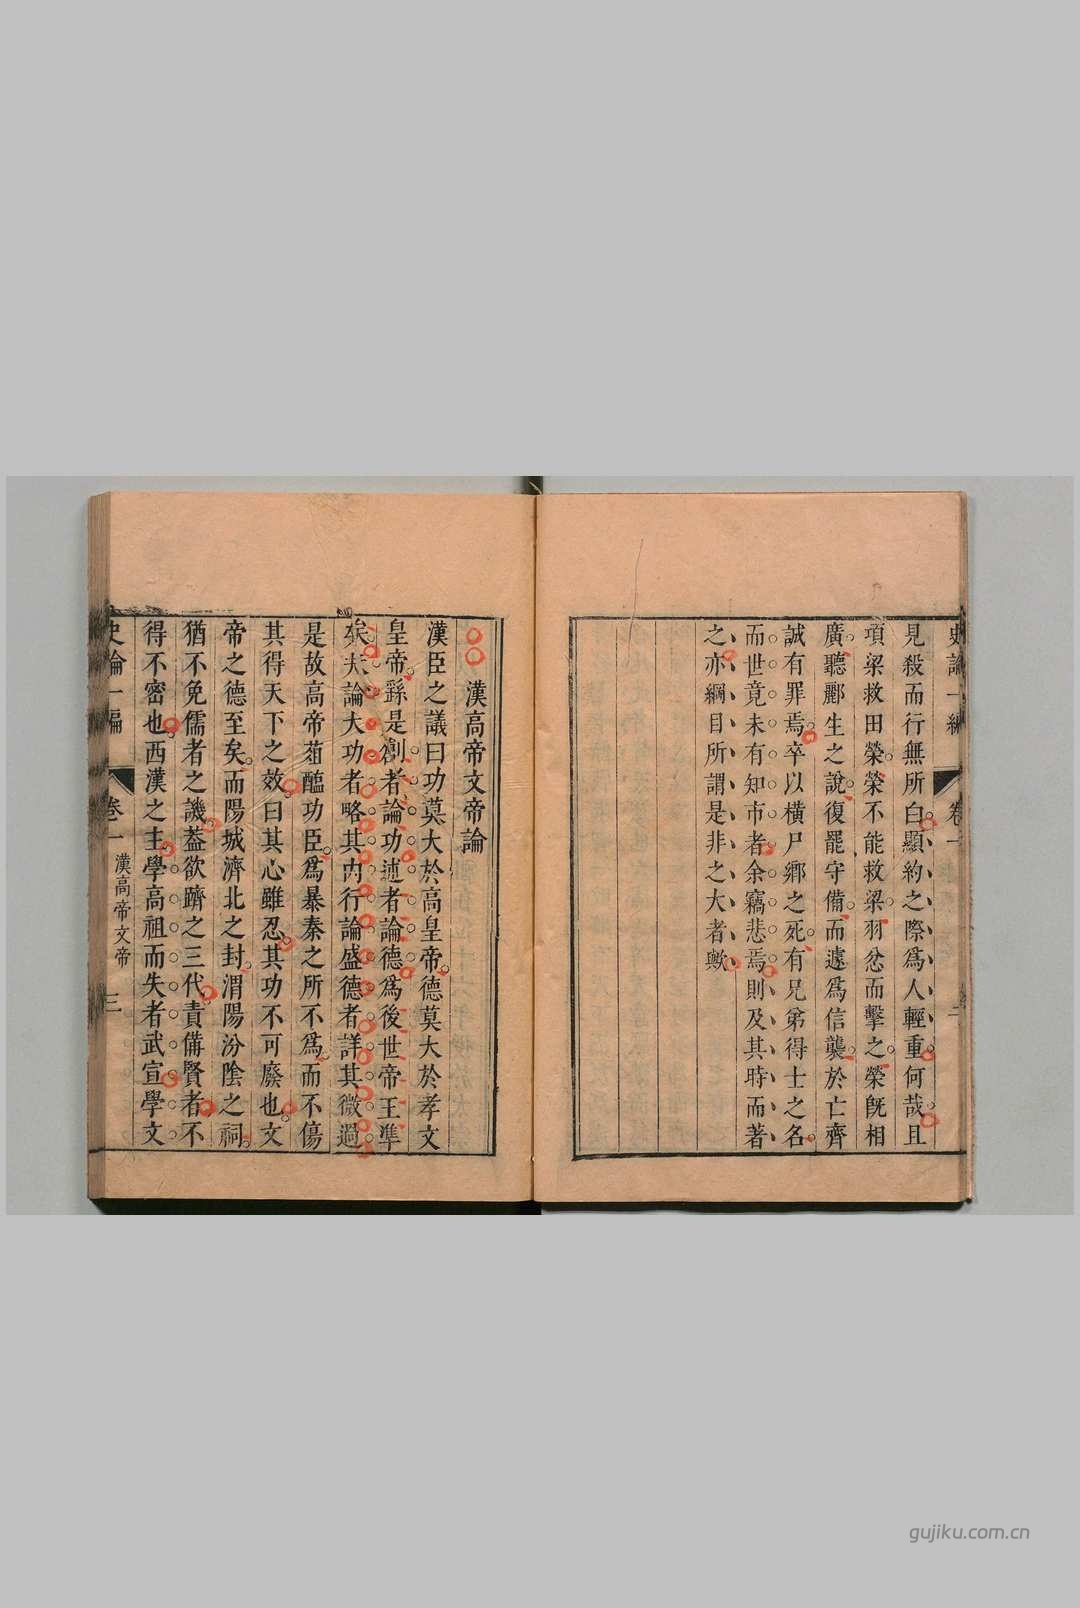 史論一編
卷一
二
見殺而行無所白顯約之際爲人輕重何哉且
項梁救田榮榮不能救梁羽忿而擊之榮旣相
廣聽酈生之說復罷守備而遽爲信襲於亡齊
誠有罪焉卒以橫尸鄉之死有兄弟得士之名
而世竟未有知市者余竊悲焉則及其時而著
之亦綱目所謂是非之大者歟
漢高帝文帝論
漢臣之議曰功莫大於高皇帝德莫大於孝文
皇帝繇是創者論功述者論德爲後世帝王準
矣夫論大功者略其內行論盛德者詳其微過
是故高帝葅醢功臣爲暴秦之所不爲而不傷
其得天下之效曰其心雖忍其功不可廢也文
帝之德至矣而陽城濟北之封渭陽汾陰之祠
猶不免儒者之譏葢欲躋之三代責備賢者不
得不密也西漢之主學高祖而失者武宣學文
史論一編
卷一
漢高帝文帝
三
gujiku.com.cn